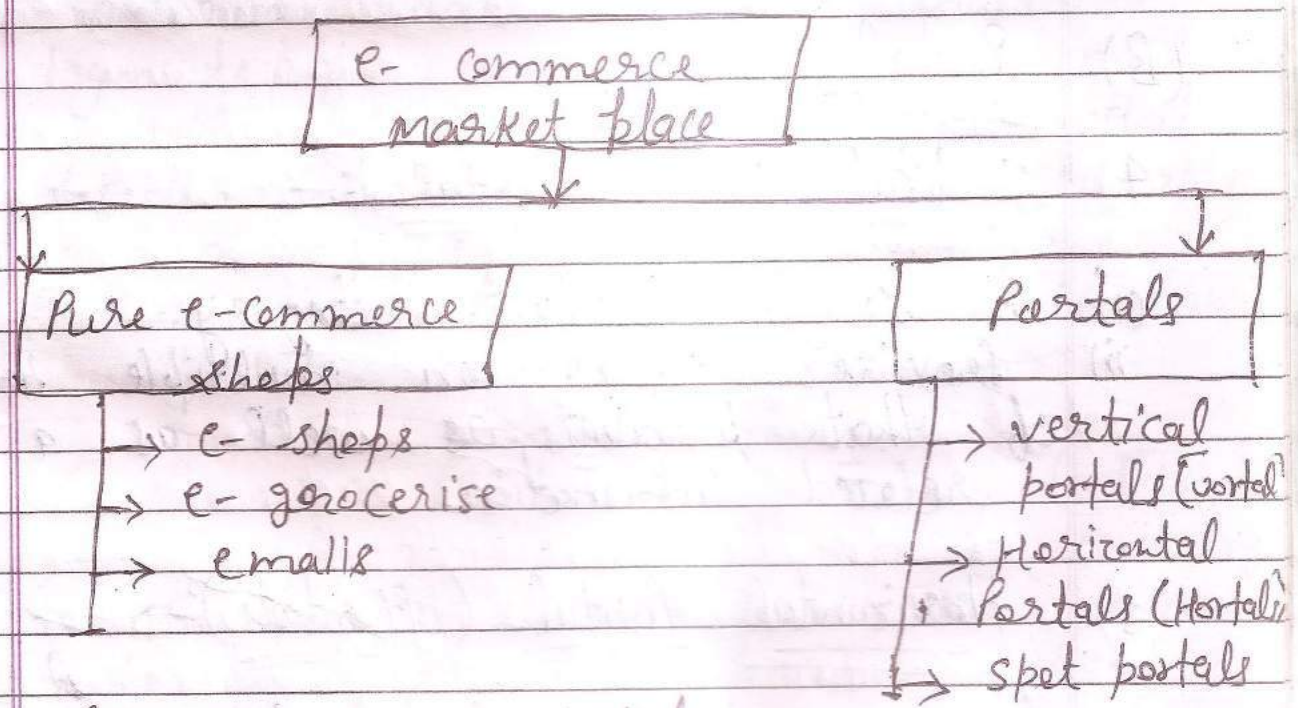 e- commerce
market place
Pure e-commerce
shops
e- shops
e- grocerise
emalls
Portals
vertical
portals (vortal)
Horizontal
Portals (Hortals)
spot portals